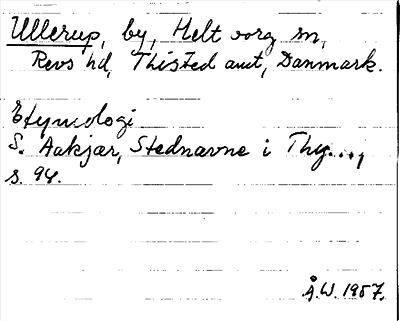 Ullerup, by, Helt sorg sn,
Revs hd, Thisted amt, Danmark.
Etymologi
S. Aakjær, Stednavne i Thy...,
s. 94.
Å.W. 1957.